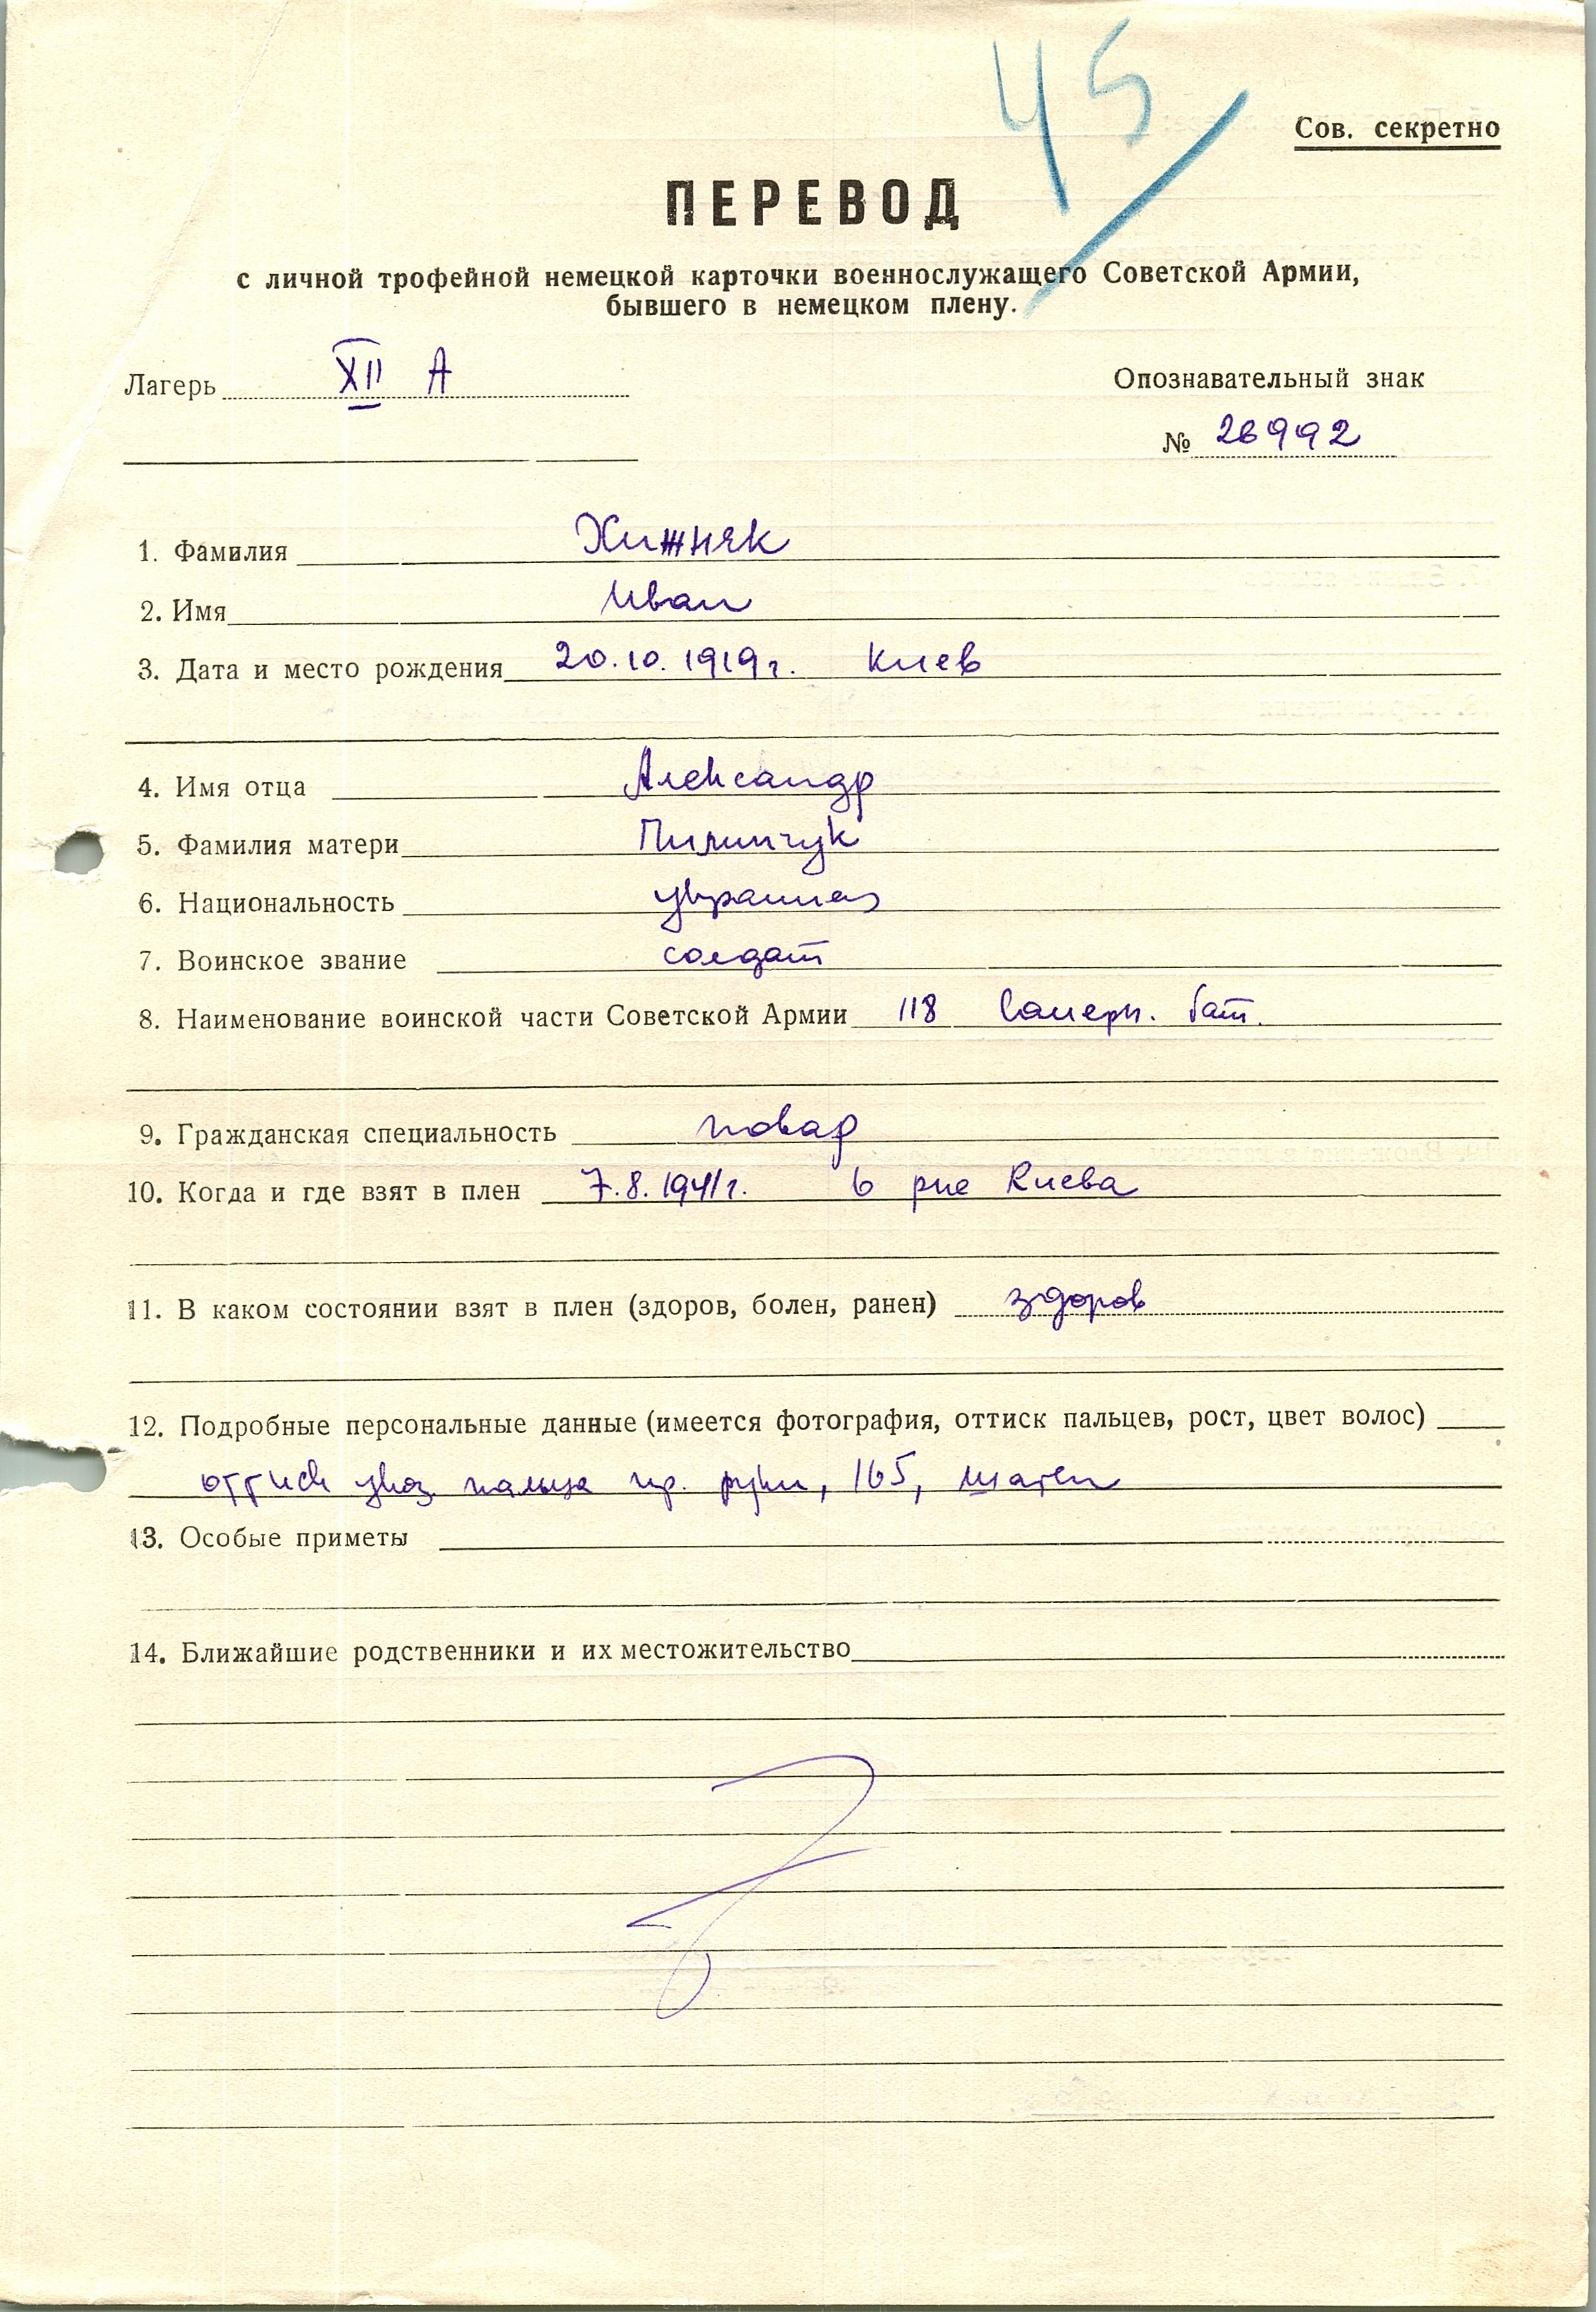 45
Сов. секретно
ПЕРЕВОД
с личной трофейной немецкой карточки военнослужащего Советской Армии,
бывшего в немецком плену.
Лагерь XII А
Опознавательный знак
№ 26992
1. Фамилия Хижняк
2. Имя Иван
3. Дата и место рождения 20.10.1919г. Киев
4. Имя отца Александр
5. Фамилия матери
6. Национальность украинец
7. Воинское звание солдат
8. Наименование воинской части Советской Армии 118 саперн. бат.
9. Гражданская специальность повар
10. Когда и где взят в плен 7.8.1941г. в р-не Киева
11. В каком состоянии взят в плен (здоров, болен, ранен) здоров
12. Подробные персональные данные (имеется фотография, оттиск пальцев, рост, цвет волос)
оттиск указ. пальца пр. руки, 165, шатен
13. Особые приметы
14. Ближайшие родственники и их местожительство